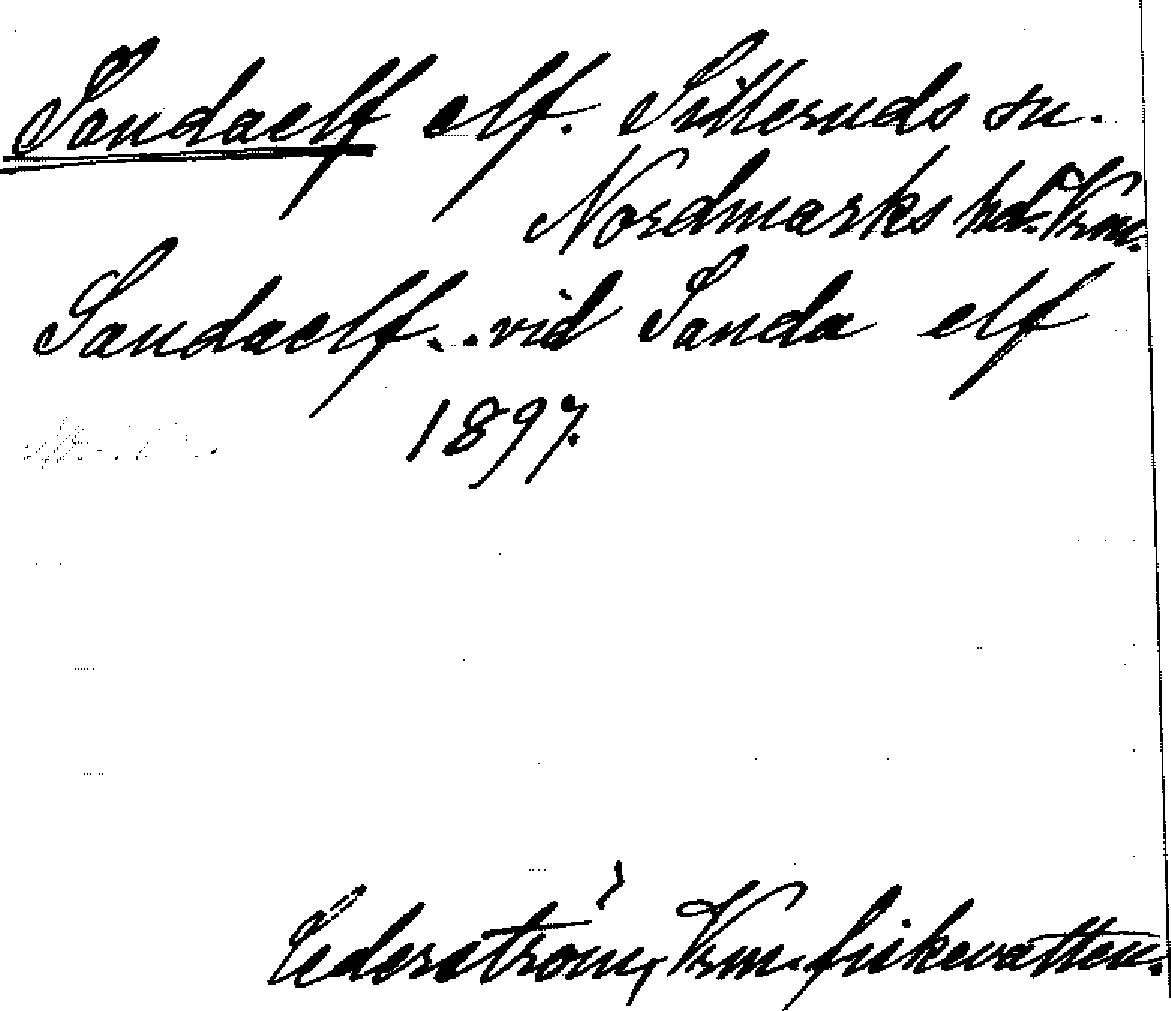 Sandaelf elf. Silleruds sn.
Nordmarks hd. Vrm.
Sandaelf...vid Sanda elf
1897.
Cederström, Vrm. fiskevatten.